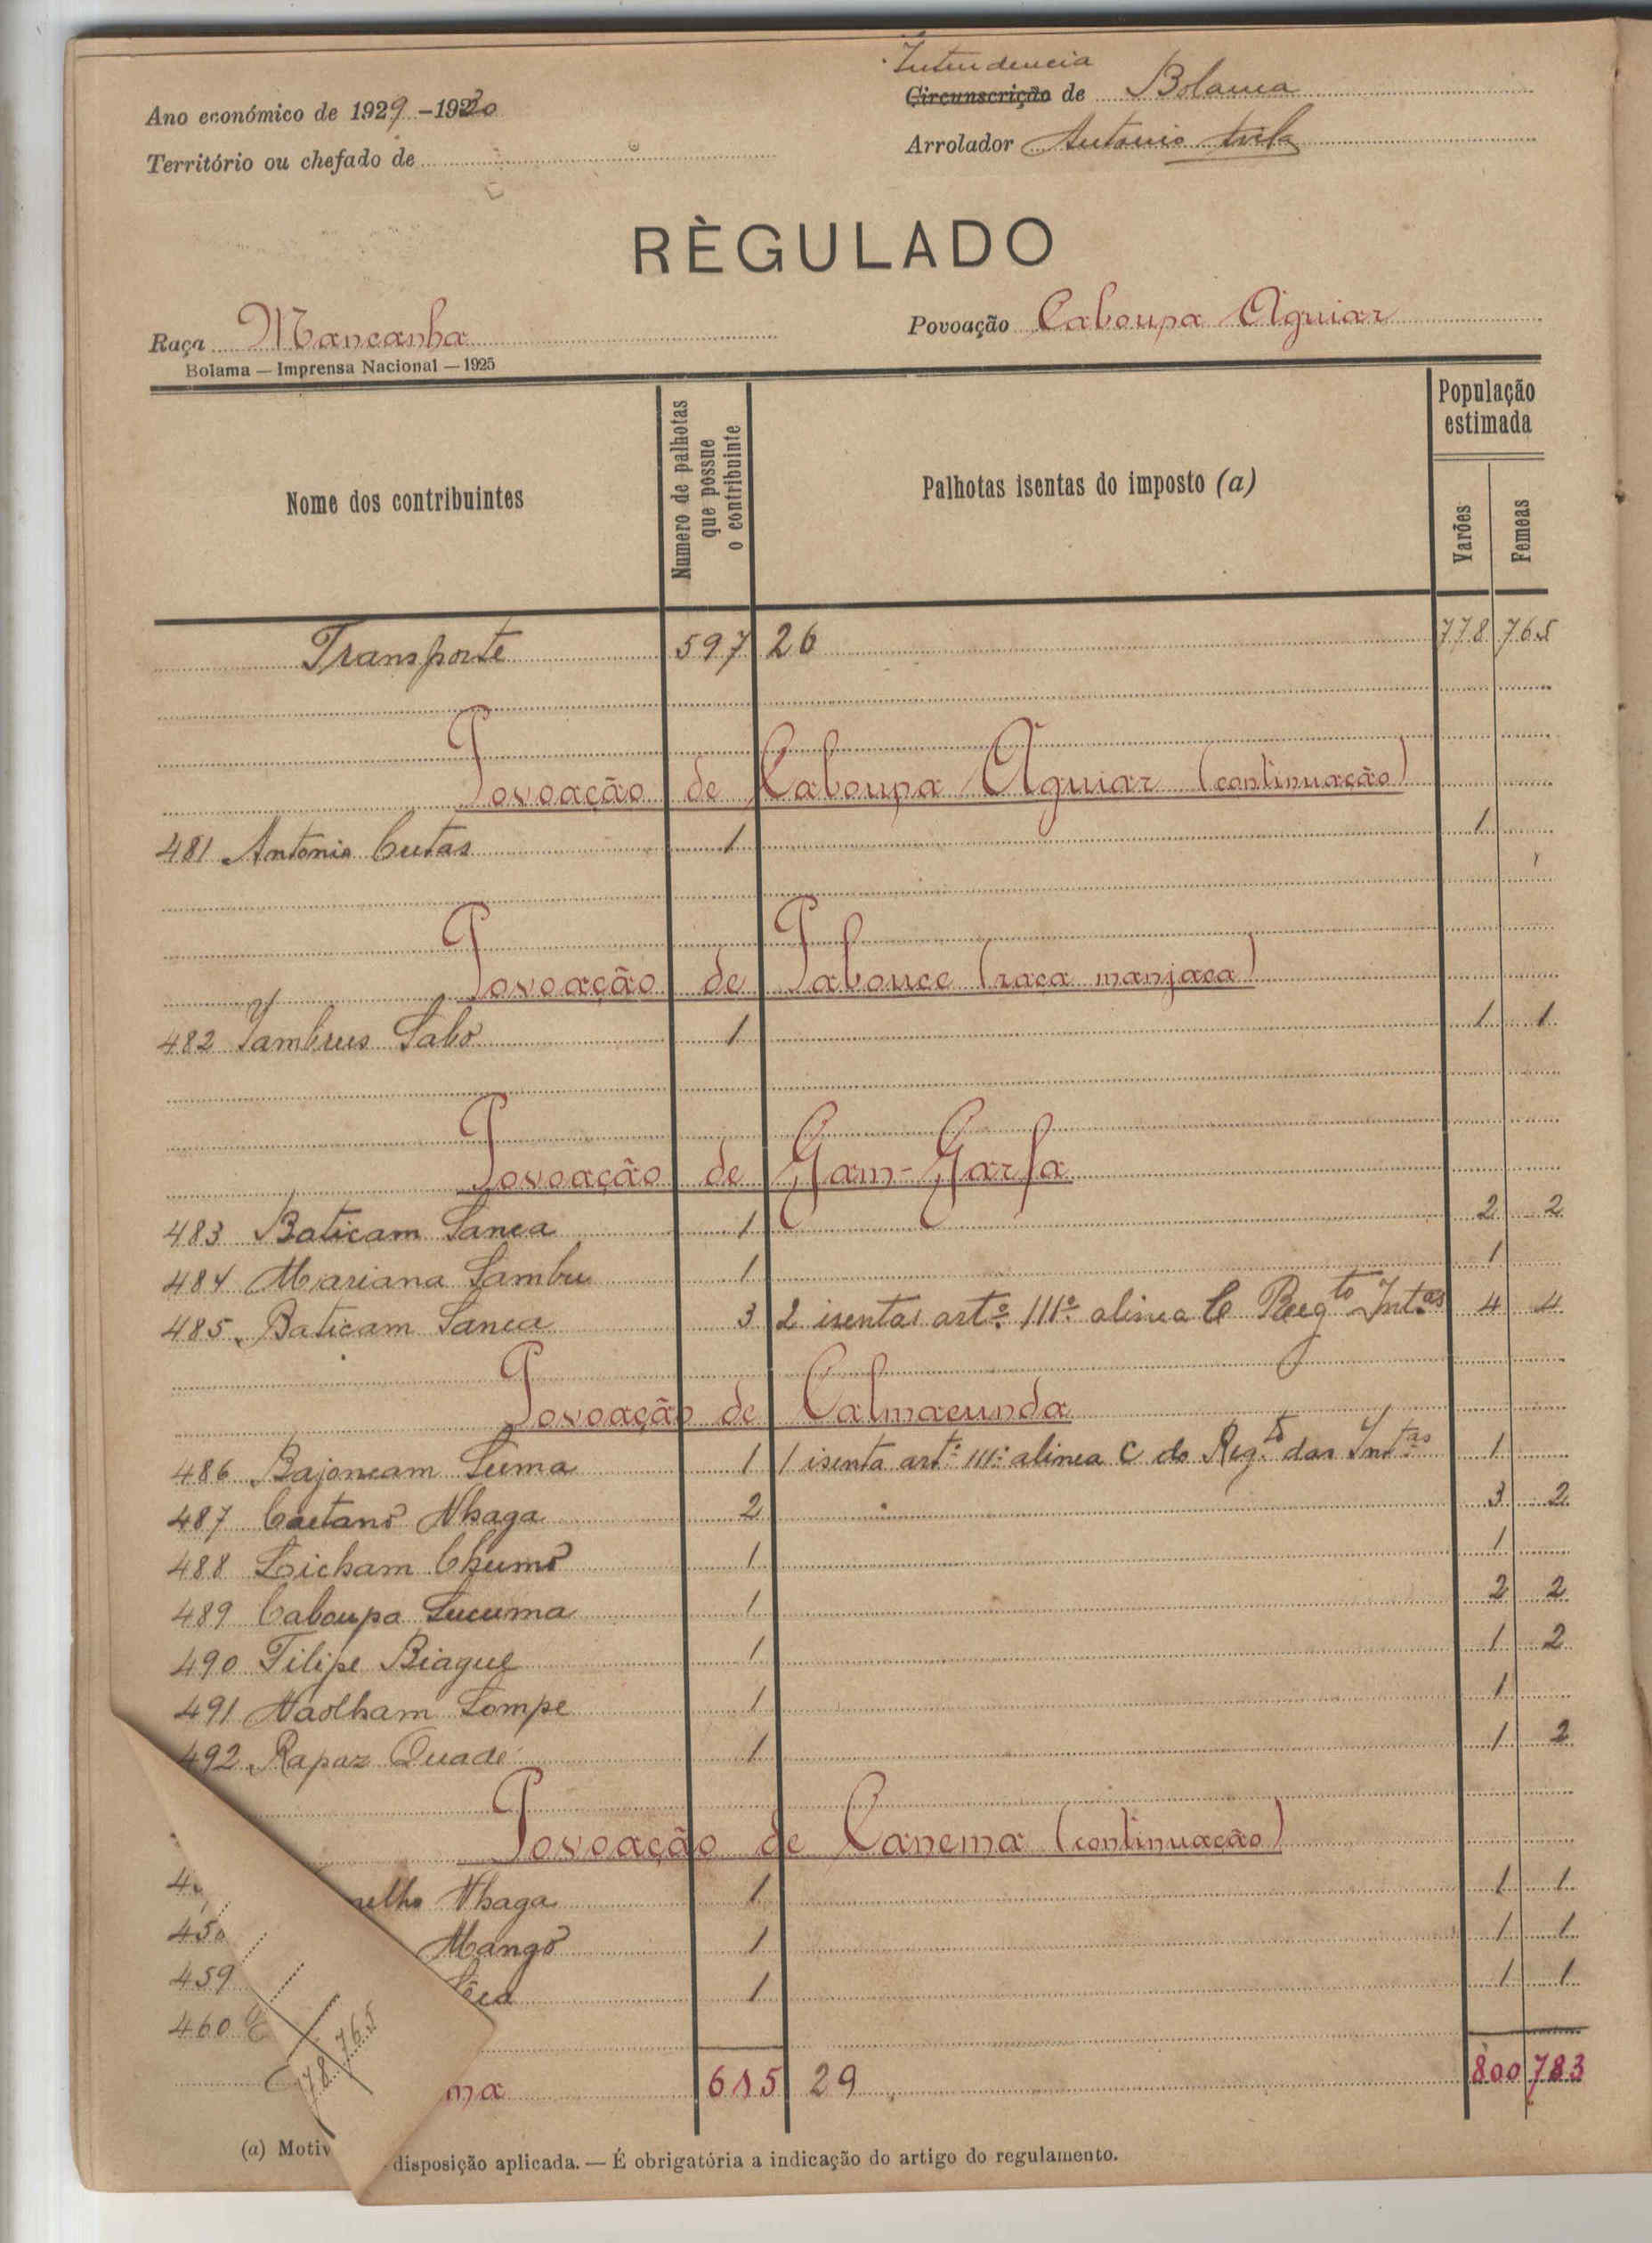 Intendencia
Ano económico de 1929-1930
Circunscrição de Bolama
Território ou chefado de
Arrolador Antonio
RÈGULADO
Raça Mancanha
Povoação Caboupa Aguiar
Bolama — Imprensa Nacional — 1925
Nome dos contribuintes
Numero de palhotas que possue o contribuinte
Palhotas isentas do imposto (a)
População estimada
Varões
Femeas
Transporte 597 26 778 765
Povoação de Caboupa Aguiar (continuação)
481 Antonio Cutas 1 1
Povoação de Pabouce (raça manjaca)
482 Jambrus Sabo 1 1 1
Povoação de Gam-Garfa
483 Baticam Sanca 1 2 2
484 Mariana Sambu 1 1
485 Baticam Sanca 3 2 isentas artº. 111º alinea C Regto Intas 4 4
Povoação de Calmacunda
486 Bajoncam Suma 1 1 isenta artº 111º alinea C do Regto das Intas 1
487 Caetano Nhaga 2 3 2
488 Licham Chumo 1 1
489 Caboupa Sucuma 1 2 2
490 Filipe Biague 1 1 2
491 Naolham Sompe 1 1
492 Rapaz Quadé 1 1 2
Povoação de Canema (continuação)
elho Nhaga 1 1 1
Mangô 1 1 1
459 1 1 1
460
78 765
ma 615 29 800 783
(a) Motiv disposição aplicada. — É obrigatória a indicação do artigo do regulamento.